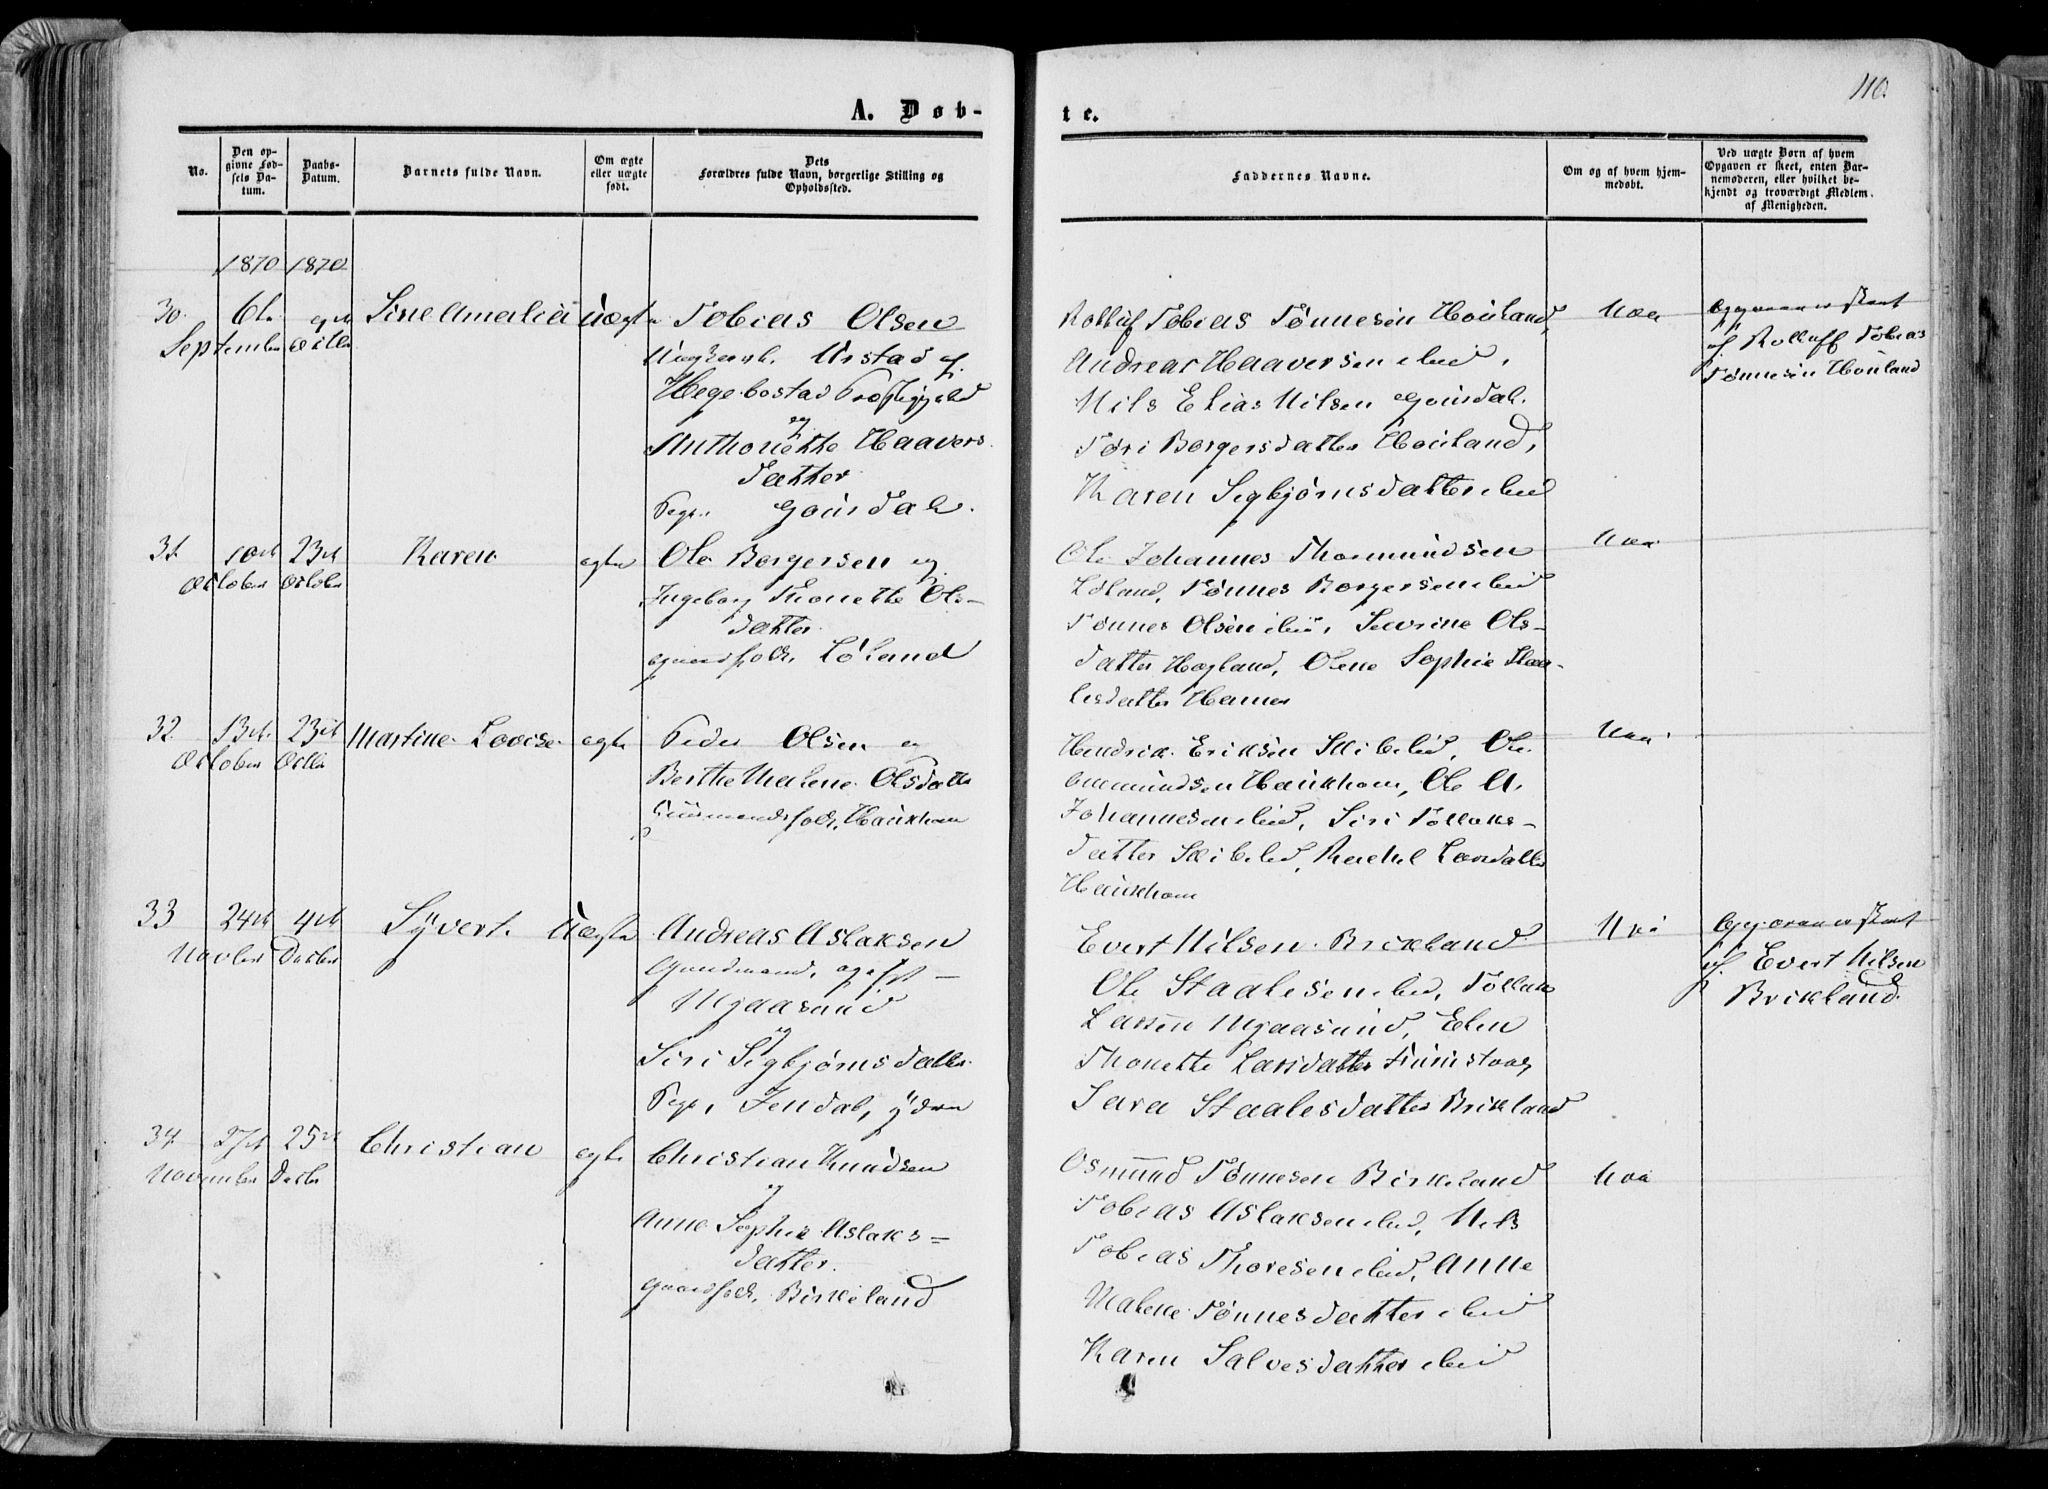 110.
A. Døb-
te.
No.
Den op-
givne Fød-
sels Da-
tum.
Daabs-
Datum.
Barnets fulde Navn.
Om ægte
eller uægte
født.
Dets
Forældres fulde Navn, borgerlige Stilling og
Opholdssted.
Faddernes Navne.
Om og af hvem hjem-
medøbt.
Ved uægte Børn af hvem
Opgaven er skeet, enten Bar-
nemoderen, eller hvilket be-
kjendt og troværdigt Medlem
af Menigheden.
1870 1870
30. 6te
September
Sine Amalia
Uægte
Tobias Olsen
Ungkarl. Urstad af
Hegebostad Præstegjeld
og
Anthonette Haavers
datter
Pige. Gausdal.
Rolluf Tobias Tønnesen Houland,
Andreas Haaversen ibid,
Nils Elias Nilsen Gausdal.
Tori Borgersdatter Houland,
Karen Sigbjørnsdatter ibid
Opgaven er skeet
af Rolluff Tobias
Tønnesen Houland
31. 10de 23de
October October
Karen
ægte
Ole Borgersen og
Ingeborg Thonette Ols-
datter
Gaardfolk, Løland
Ole Johannes Thormundsen
Løland, Tønnes Borgersen ibid
Tønnes Olsen ibid, Sevrine Ols-
datter Hogland, Olene Sophie Staa-
lesdatter Hamer
32. 13de 23de
October Octbr
Martine Lovise
ægte
Peder Olsen og
Berthe Malene Olsdatter
Huusmandsfolk, Haukhom
Hendrik Eriksen Skibelid, Ole
Ommundsen Haukhom, Ole A.
Johannesen ibid, Siri Tollaks-
datter Skibelid, Rachel Larsdatter
Haukhom
33 24de 4de
Novber Decber
Syvert.
Uægte
Andreas Aslaksen
Gaardmand, og gift -
Mjaasund
og
Siri Sigbjørnsdatter
Pige, Jendal, ydre
Evert Nilsen Brikland
Ole Staalesen ibid, Tollak
Larsen Mjaasund, Elen
Thonette Larsdatter
Sara Staalesdatter Brikland
Opgaven er skeet
af Evert Nilsen
Brikland.
34 27de 25de
November Decbr
Christian
ægte
Christian Knudsen
og
Anne Sophie Aslaks=
datter.
Gaardfolk, Birkeland
Osmund Tønnesen Birkeland
Tobias Aslaksen ibid, Nils
Tobias Thoresen ibid, Anne
Malene Tønnesdatter ibid
Karen Salvesdatter ibid